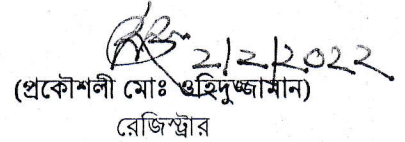 2/2/2022
(প্রকৌশলী মোঃ ওহিদুজ্জামান)
রেজিস্ট্রার